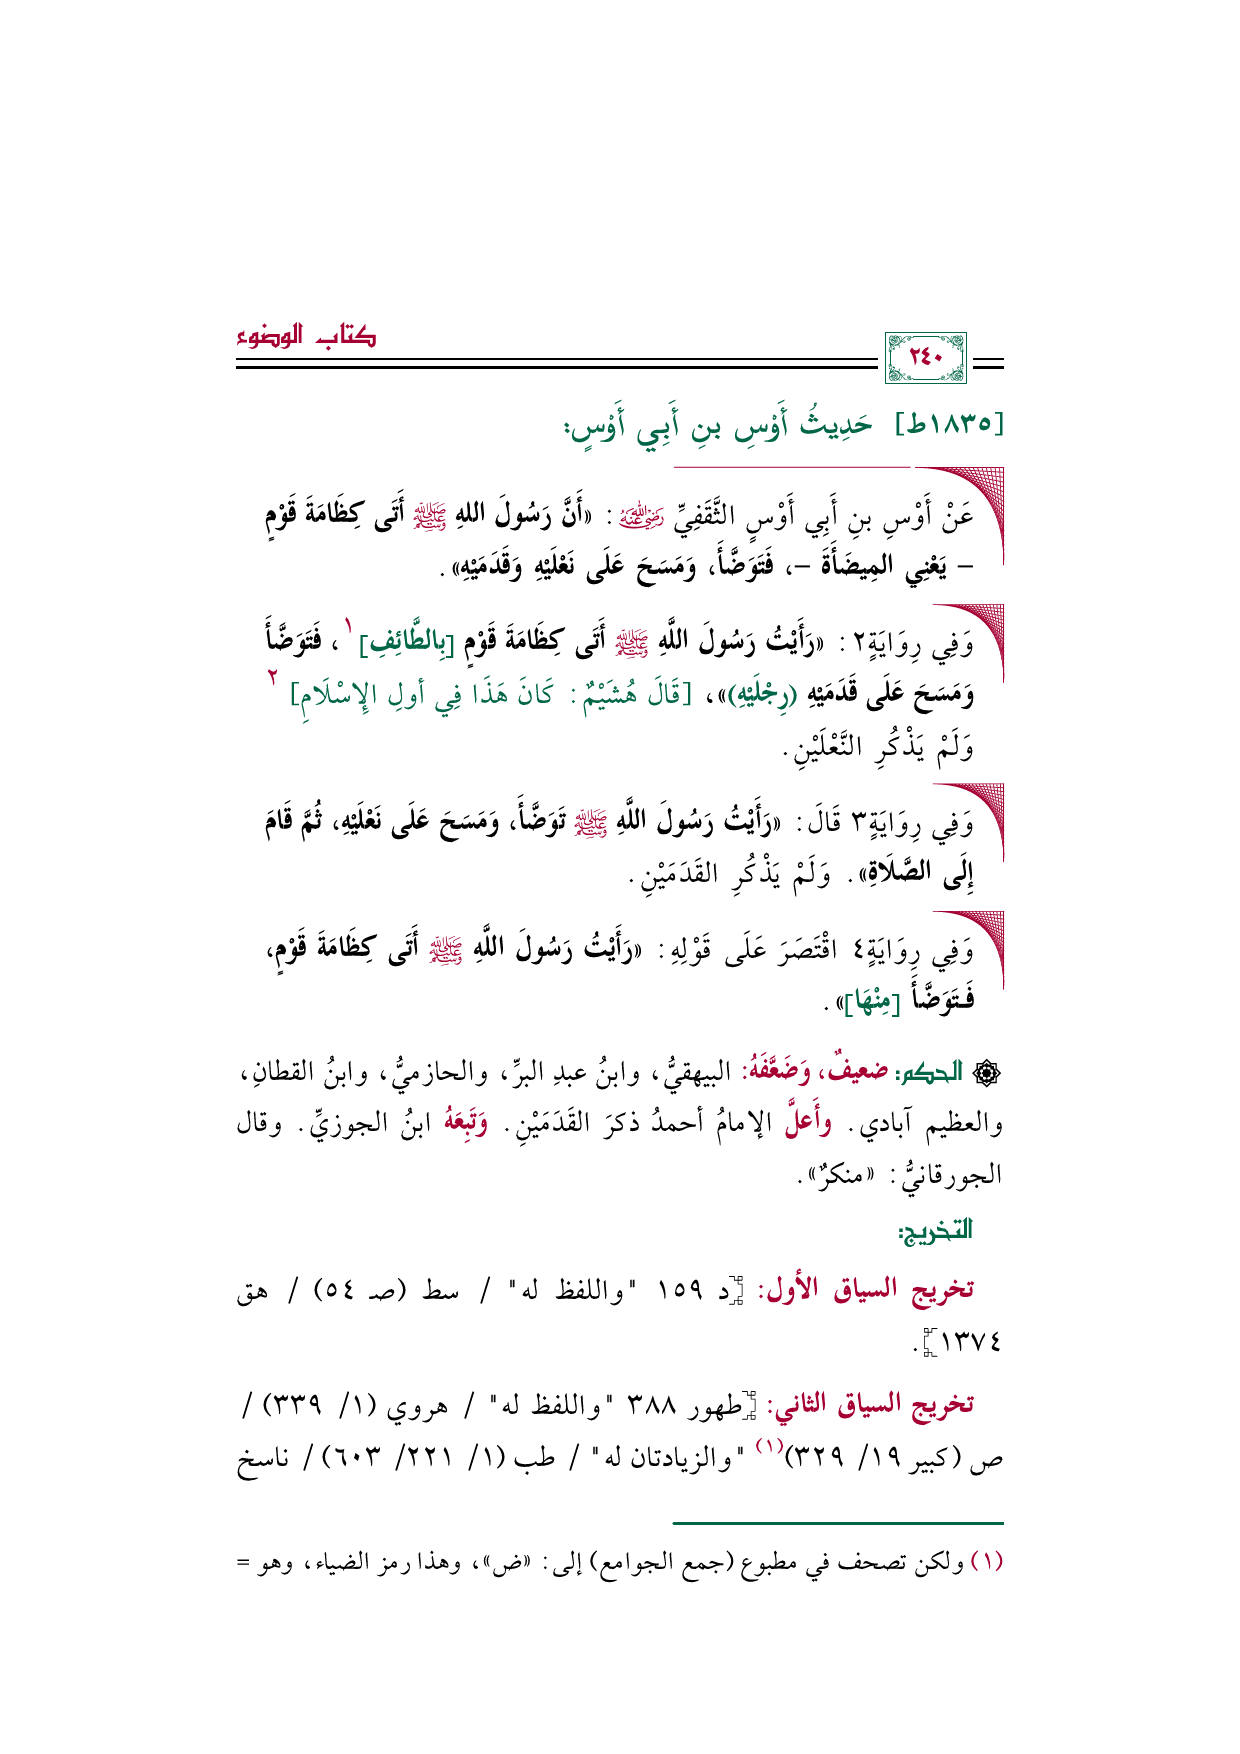 كتاب الوضوء
٢٤٠
[١٨٣٥ط] حَدِيثُ أَوْسِ بنِ أَبِي أَوْسٍ:
عَنْ أَوْسِ بنِ أَبِي أَوْسٍ الثَّقَفِيِّ رضي الله عنه: «أَنَّ رَسُولَ اللهِ ﷺ أَتَى كِظَامَةَ قَوْمٍ
– يَعْنِي المِيضَأَةَ –، فَتَوَضَّأَ، وَمَسَحَ عَلَى نَعْلَيْهِ وَقَدَمَيْهِ».
وَفِي رِوَايَةٍ٢: «رَأَيْتُ رَسُولَ اللَّهِ ﷺ أَتَى كِظَامَةَ قَوْمٍ [بِالطَّائِفِ]١، فَتَوَضَّأَ
وَمَسَحَ عَلَى قَدَمَيْهِ (رِجْلَيْهِ)»، [قَالَ هُشَيْمٌ: كَانَ هَذَا فِي أولِ الإِسْلَامِ]٢
وَلَمْ يَذْكُرِ النَّعْلَيْنِ.
وَفِي رِوَايَةٍ٣ قَالَ: «رَأَيْتُ رَسُولَ اللَّهِ ﷺ تَوَضَّأَ، وَمَسَحَ عَلَى نَعْلَيْهِ، ثُمَّ قَامَ
إِلَى الصَّلَاةِ». وَلَمْ يَذْكُرِ القَدَمَيْنِ.
وَفِي رِوَايَةٍ٤ اقْتَصَرَ عَلَى قَوْلِهِ: «رَأَيْتُ رَسُولَ اللَّهِ ﷺ أَتَى كِظَامَةَ قَوْمٍ،
فَـتَوَضَّأَ [مِنْهَا]».
الحكم: ضعيفٌ، وَضَعَّفَهُ: البيهقيُّ، وابنُ عبدِ البرِّ، والحازميُّ، وابنُ القطانِ،
والعظيم آبادي. وأَعلَّ الإمامُ أحمدُ ذكرَ القَدَمَيْنِ. وَتَبِعَهُ ابنُ الجوزيِّ. وقال
الجورقانيُّ: «منكرٌ».
التخريج:
تخريج السياق الأول: [د ١٥٩ "واللفظ له" / سط (صـ ٥٤) / هق
١٣٧٤].
تخريج السياق الثاني: [طهور ٣٨٨ "واللفظ له" / هروي (١/ ٣٣٩) /
ص (كبير ١٩/ ٣٢٩)(١) "والزيادتان له" / طب (١/ ٢٢١/ ٦٠٣) / ناسخ
(١) ولكن تصحف في مطبوع (جمع الجوامع) إلى: «ض»، وهذا رمز الضياء، وهو =